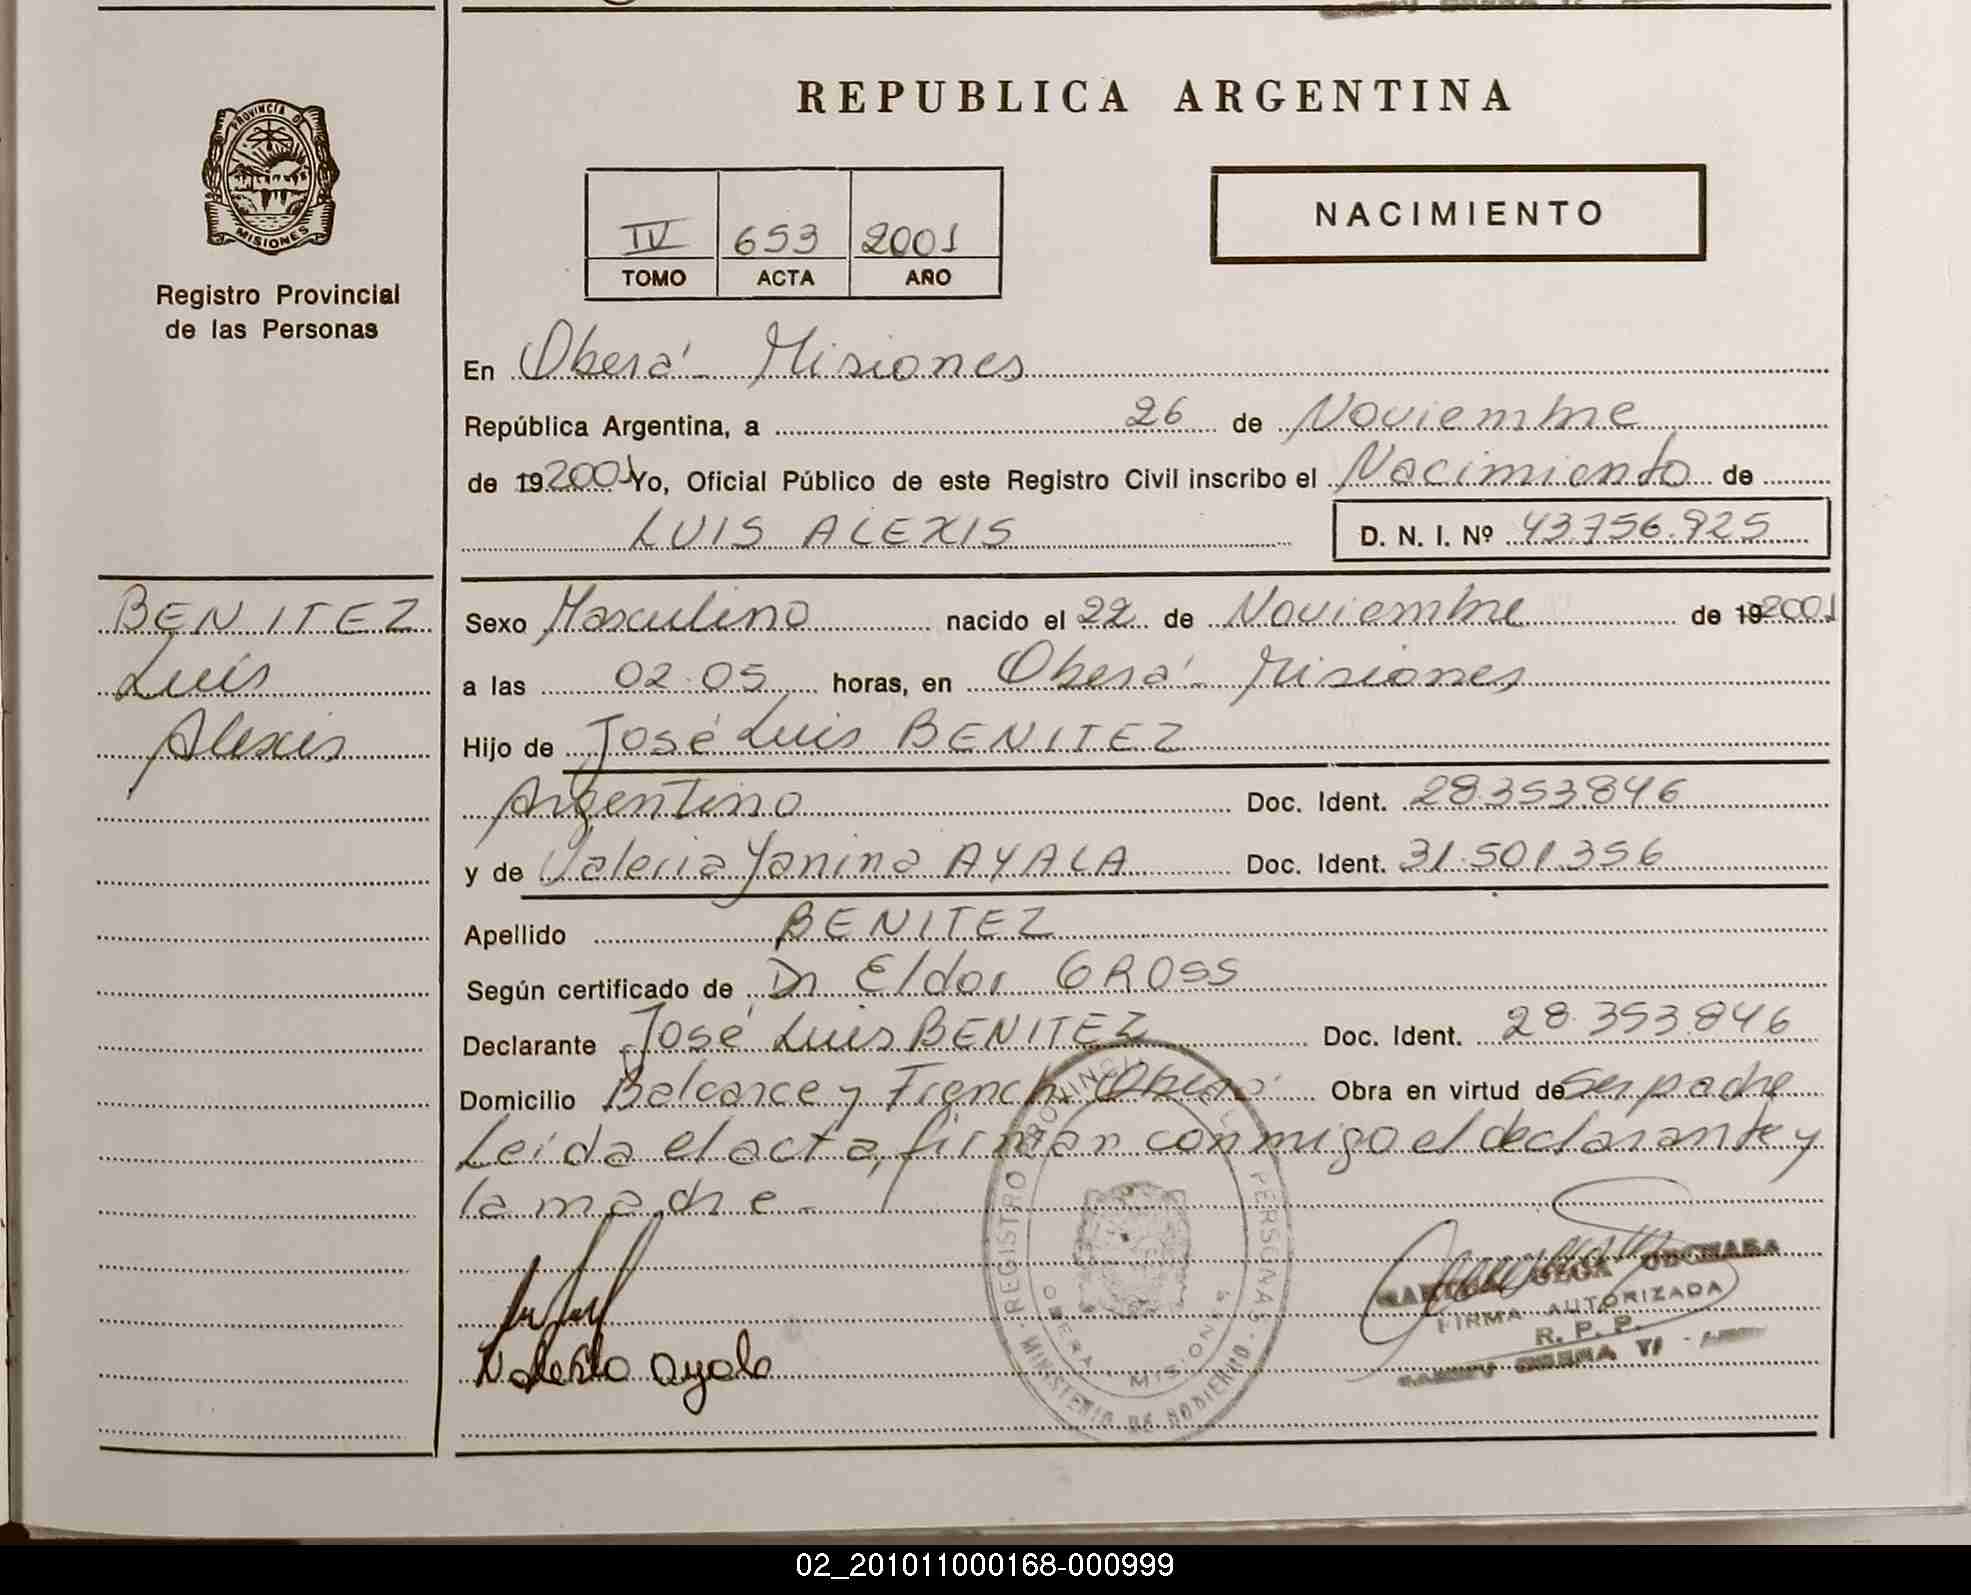 REPUBLICA ARGENTINA
PROVINCIA DE
MISIONES
Registro Provincial
de las Personas
NACIMIENTO
IV 653 2001
TOMO ACTA AÑO
En Oberá - Misiones
República Argentina, a 26 de Noviembre
de 19 2001 Yo, Oficial Público de este Registro Civil inscribo el Nacimiento de
LUIS ALEXIS D. N. I. Nº 43.756.925
BENITEZ
Luis
Alexis
Sexo Masculino nacido el 22 de Noviembre de 19 2001
a las 02.05 horas, en Oberá - Misiones
Hijo de José Luis BENITEZ
Argentino Doc. Ident. 28.353.846
y de Valeria Yanina AYALA Doc. Ident. 31.501.356
Apellido BENITEZ
Según certificado de Dr Eldor GROSS
Declarante José Luis BENITEZ Doc. Ident. 28.353.846
Domicilio Balcarce y French Oberá Obra en virtud de ser padre
Leída el acta, firman conmigo el declarante y
la madre -
REGISTRO PROVINCIAL DE PERSONAS
MINISTERIO DE GOBIERNO
OBERA MISIONES
FIRMA AUTORIZADA
R. P. P.
Valeria Ayala
02_201011000168-000999